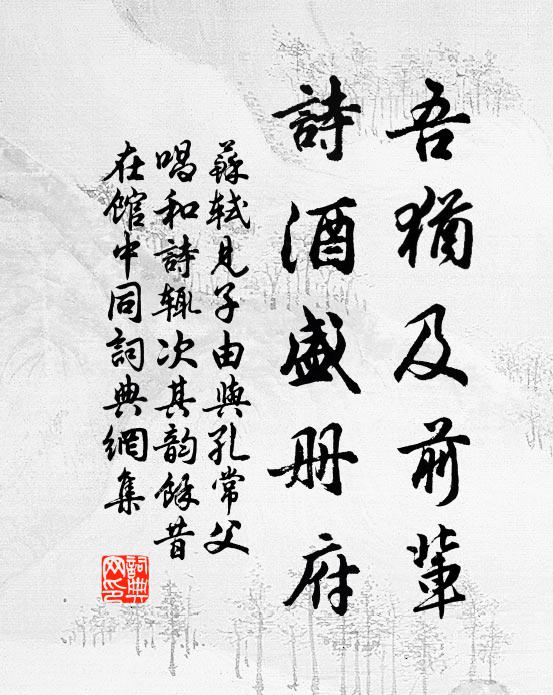 吾猶及前輩
詩酒盛册府
蘇軾見子由與孔常父
唱和詩辄次其韵餘昔
在館中同詞典網集
詞典网印